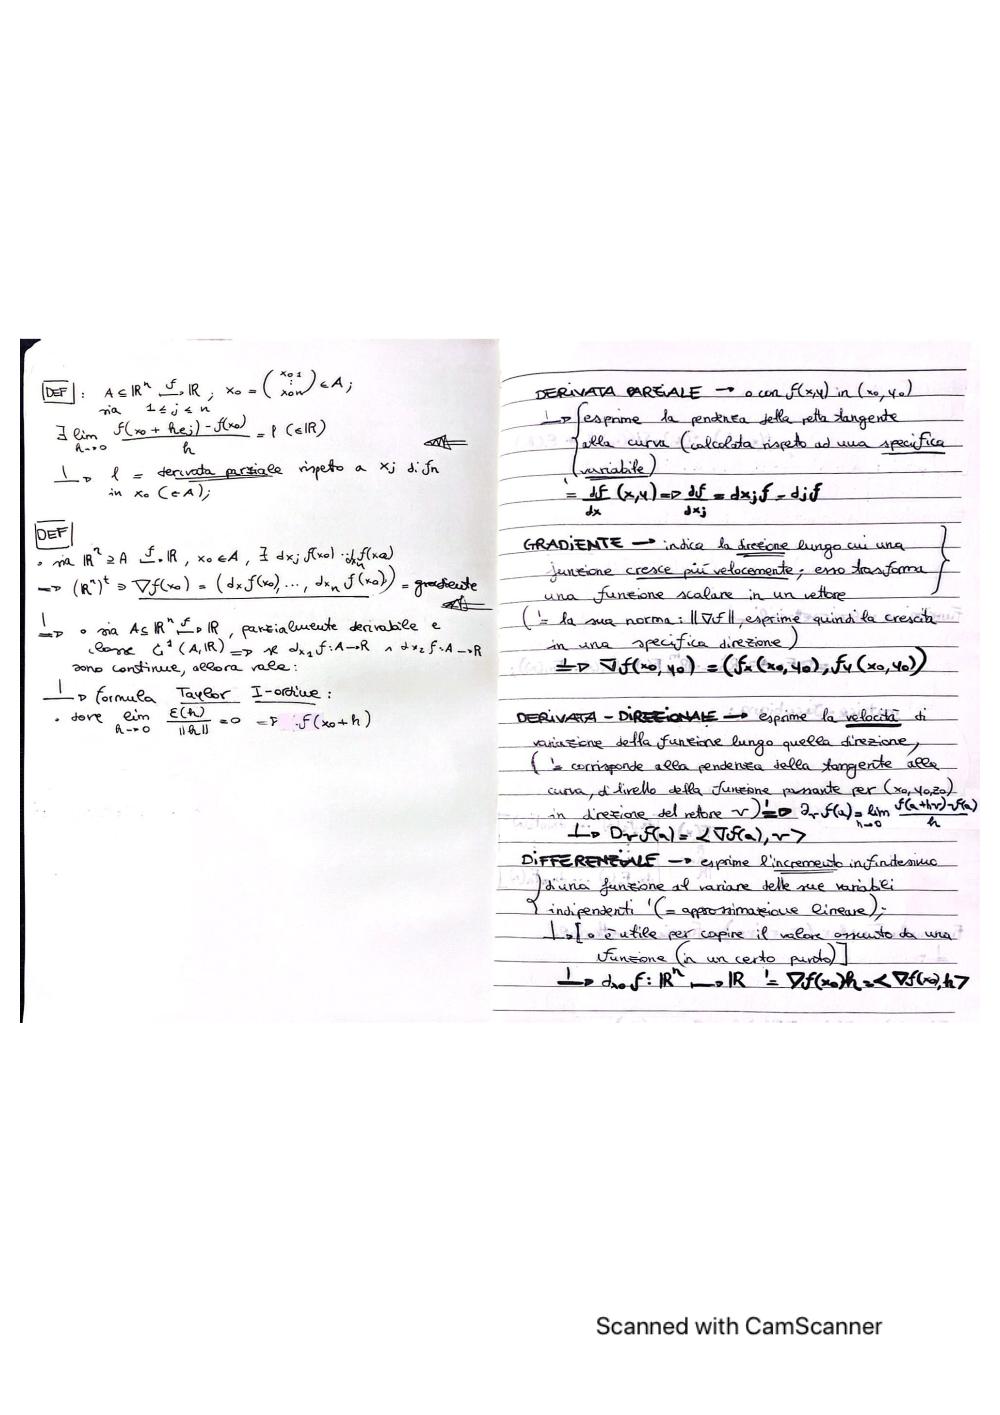 DEF : A ⊆ ℝⁿ →f ℝ, x₀ = (x₀₁ ⋮ x₀n) ∈ A;
sia 1 ≤ j ≤ n
∃ lim h→0 f(x₀ + hej) - f(x₀) / h = l (∈ ℝ)
↳ l = derivata parziale rispetto a xj di fn
in x₀ (∈ A);
DEF
• sia ℝⁿ ⊇ A →f ℝ, x₀ ∈ A, ∃ dxj f(x₀) dxn f(x₀)
⇒ (ℝⁿ)ᵗ ∋ ∇f(x₀) = (dx f(x₀), ..., dxn f(x₀)) = gradiente
↳ • sia A ⊆ ℝⁿ →f ℝ, parzialmente derivabile e
classe C¹ (A, ℝ) ⇒ se dx₁ f: A→ℝ ∧ dx₂ f: A→ℝ
sono continue, allora vale:
↳ formula Taylor I-ordine:
• dove lim h→0 ε(h) / ||h|| = 0 ⇒ f(x₀+h)
DERIVATA PARZIALE → • con f(x,y) in (x₀, y₀)
↳ {esprime la pendenza della retta tangente
alla curva (calcolata rispeto ad una specifica
variabile)
= df/dx (x,y) ⇒ df/dxj = dxj f = dj f
GRADIENTE → indica la direzione lungo cui una
funzione cresce più velocemente; esso trasforma
una funzione scalare in un vettore
(= la sua norma: ||∇f||, esprime quindi la crescita
in una specifica direzione)
↳ ∇f(x₀, y₀) = (fx (x₀, y₀), fy (x₀, y₀))
DERIVATA - DIREZIONALE → esprime la velocità di
variazione della funzione lungo quella direzione,
(= corrisponde alla pendenza della tangente alla
curva, di livello della funzione passante per (x₀, y₀, z₀)
in direzione del vetore v) ⇒ ∂v f(a) = lim h→0 f(a+hv) - f(a) / h
↳ Dv f(a) = <∇f(a), v>
DIFFERENZIALE → esprime l'incremento infinitesimo
di una funzione al variare delle sue variabili
indipendenti (= approssimazione lineare);
↳ [• è utile per capire il valore assunto da una
funzione (in un certo punto)]
↳ dx₀ f: ℝⁿ → ℝ = ∇f(x₀)h = <∇f(x₀), h>
Scanned with CamScanner